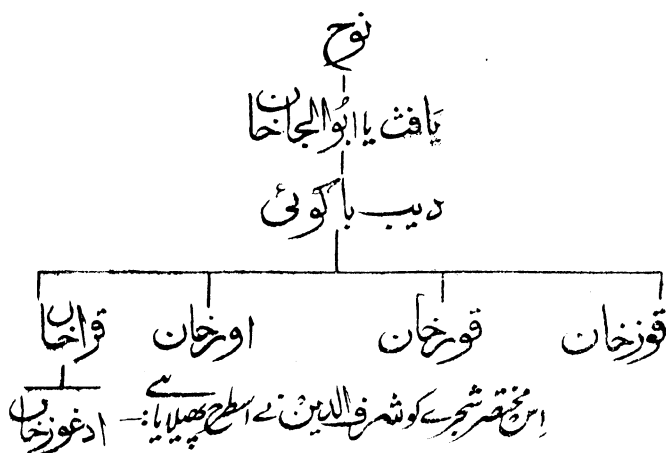 نوح
یافث یا ابوالجان خاں
دیب باکوئی
قوزخان قورخان اورخان قراخاں
اس مختصر شجرے کو شرف الدین نے اسطرح پھیلایا ہے :— ادغوزخاں